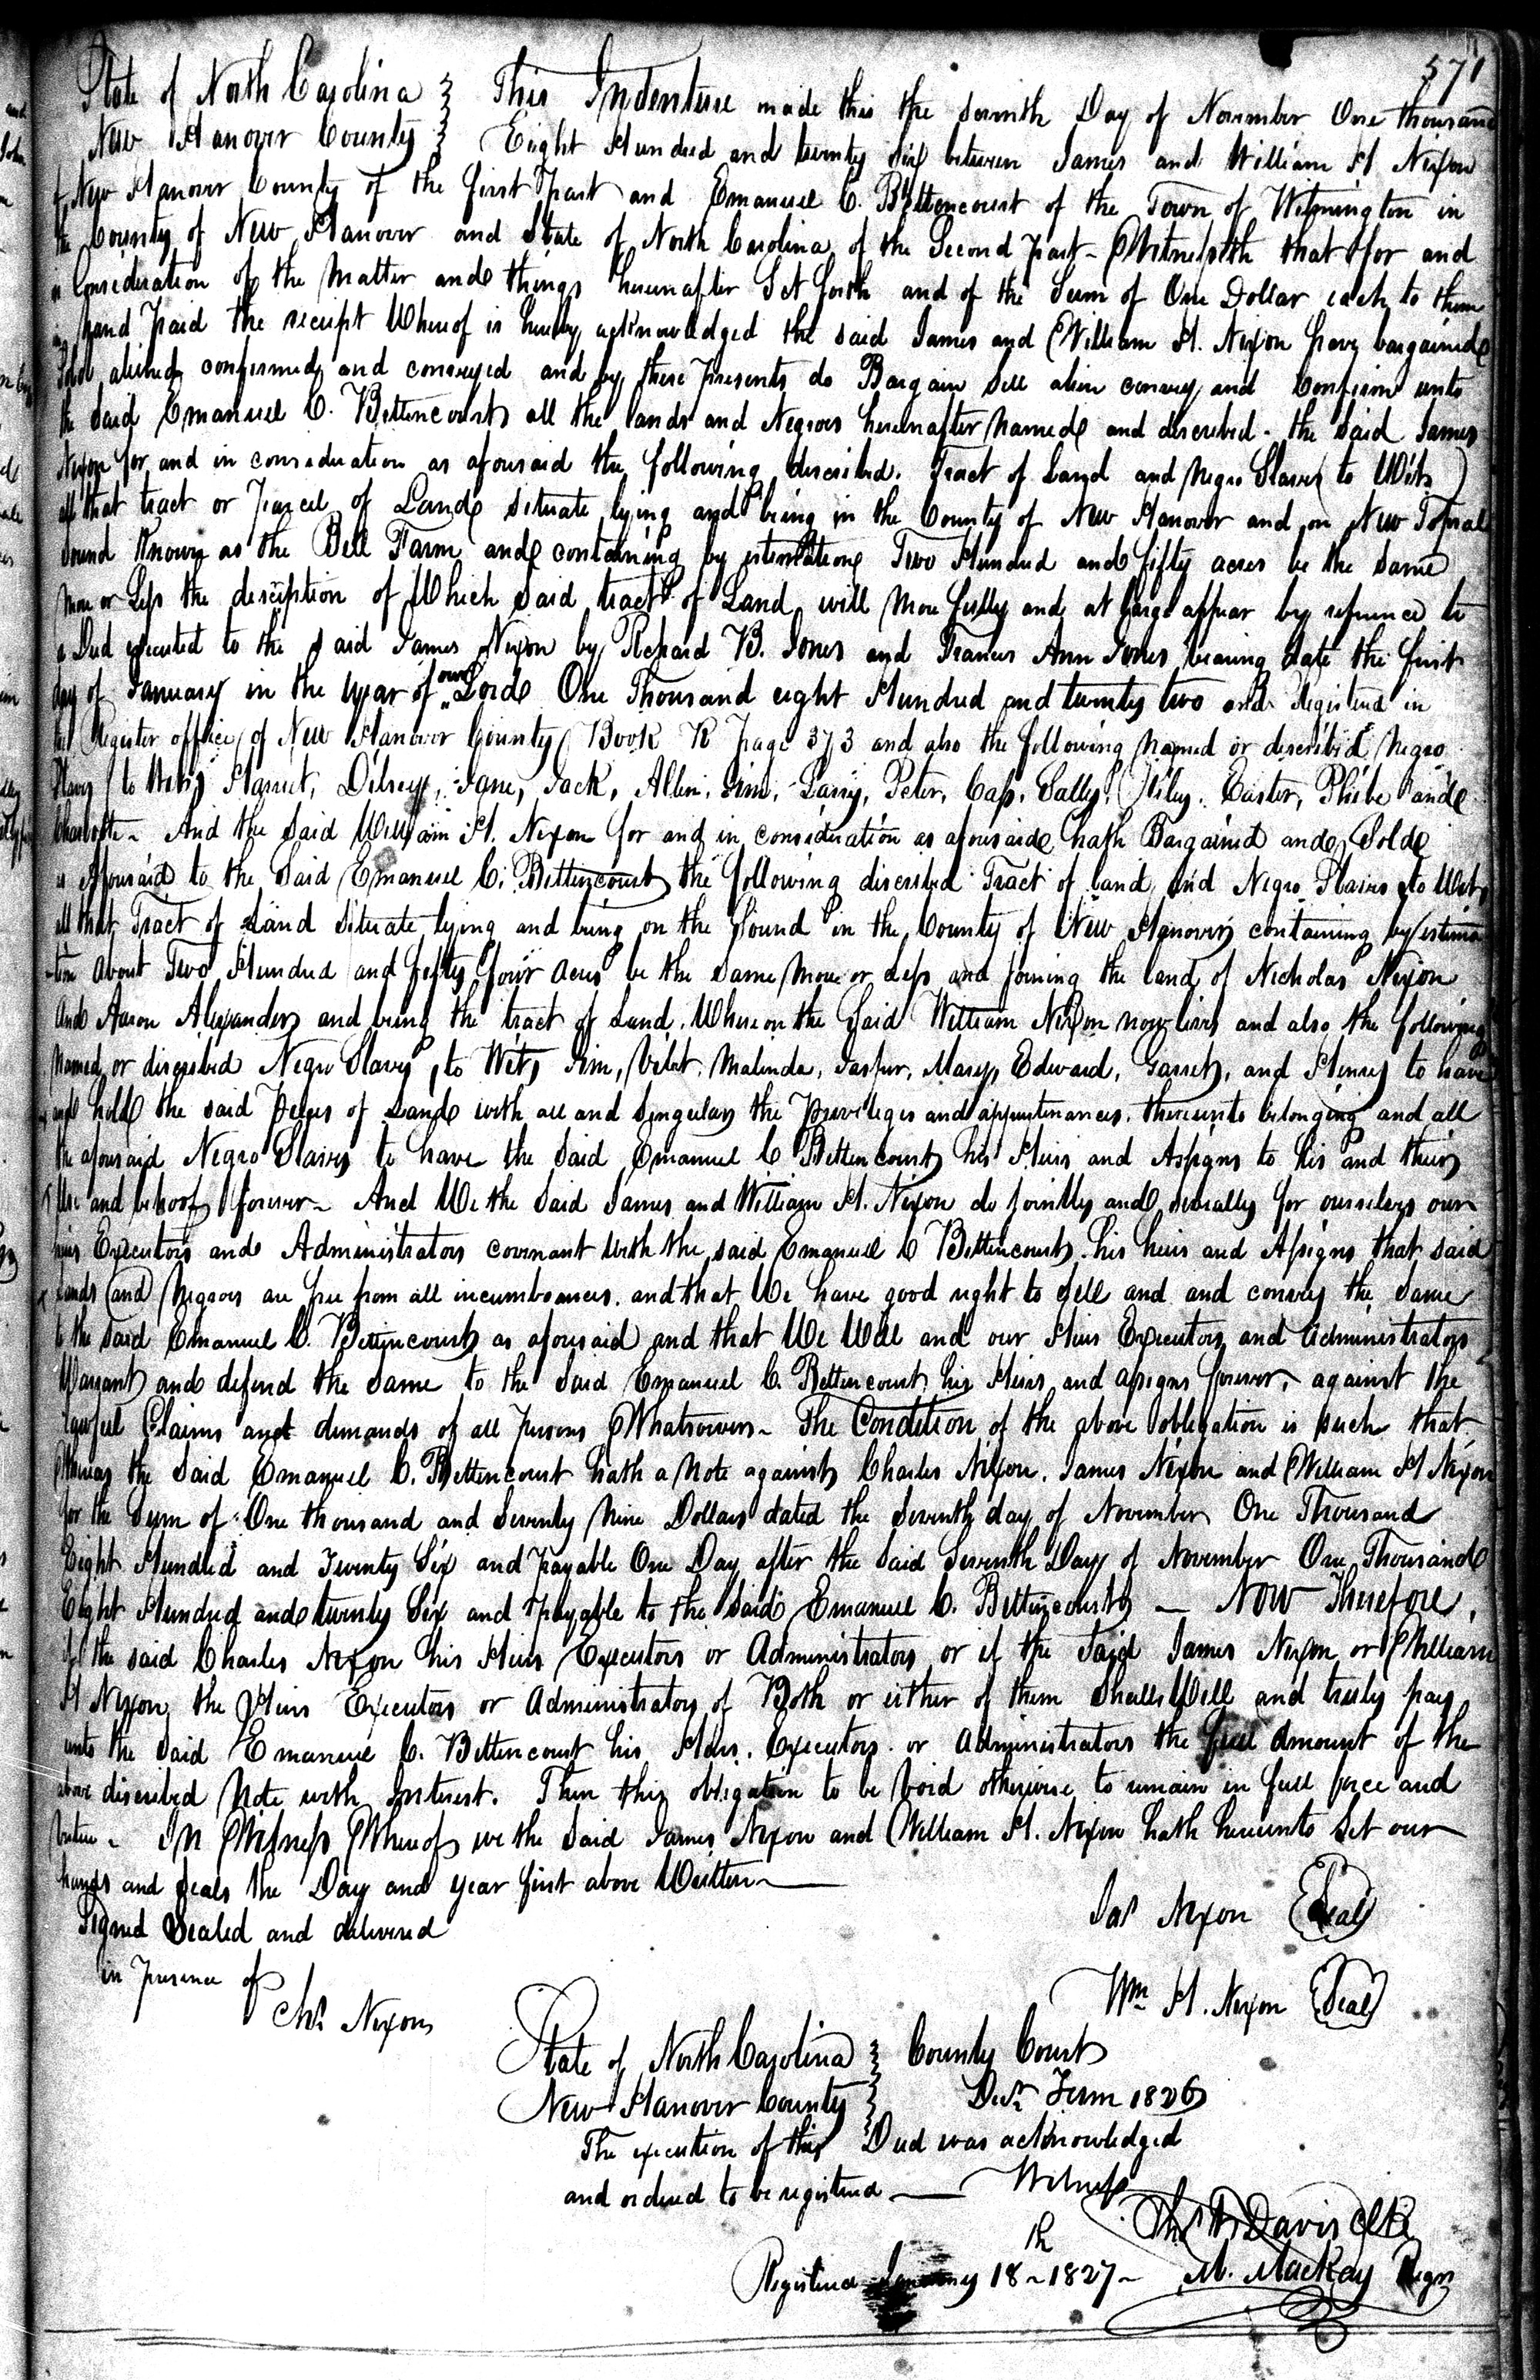 571
State of North Carolina } This Indenture made this the seventh Day of November One thousand
New Hanover County } Eight Hundred and twenty six between James and William H Nixon
of New Hanover County of the first Part and Emanuel C. Bettencourt of the Town of Wilmington in
the County of New Hanover and State of North Carolina of the Second part - Witnesseth that for and
in Consideration of the Matter and things hereinafter Set forth and of the Sum of One Dollar each to them
in hand paid the receipt Whereof is hereby acknowledged the said James and William H. Nixon have bargained
Sold aliened confirmed and conveyed and by these presents do Bargain Sell alien convey and Confirm unto
the Said Emanuel C. Bettencourt all the lands and Negroes hereinafter Named and described - the Said James
Nixon for and in consideration as aforesaid the following described Tract of Land and Negro Slaves (to Wit)
all that tract or parcel of Land situate lying and being in the County of New Hanover and on New Topsail
Sound Known as the Bell Farm and containing by estimation Two Hundred and fifty acres be the same
More or Less the description of Which said tract of Land will More fully and at large appear by reference to
a Deed executed to the said James Nixon by Richard B. Jones and Frances Ann Jones bearing date the first
day of January in the year of our Lord One Thousand eight Hundred and twenty two and Registered in
the Register office of New Hanover County Book R page 373 and also the following Named or described Negro
Slaves (to Wit) Harriet, Dilsey, Jane, Jack, Allen, Jim, Larry, Peter, Cass, Sally, Wiley, Easter, Phebe and
Charlotte - And the Said William H. Nixon for and in consideration as aforesaid hath Bargained and Sold
as Aforesaid to the Said Emanuel C. Bettencourt the following described Tract of land and Negro Slaves to Wit
all that Tract of Land Situate lying and being on the Sound in the County of New Hanover containing by estima
-tion About Two Hundred and fifty four acres be the same More or Less and joining the land of Nicholas Nixon
and Aaron Alexander and being the tract of Land Whereon the Said William Nixon now lives and also the following
Named or described Negro Slaves to Wit, Jim, Vilet, Malinda, Jasper, Mary, Edward, Garret, and Henry to have
and hold the said pieces of Land with all and Singular the Previleges and appurtenances thereunto belonging and all
the aforesaid Negro Slaves to have the Said Emanuel C Bettencourt his Heirs and Assigns to his and their
Use and behoof forever - And We the Said James and William H. Nixon do jointly and severally for ourselves our
heirs Executors and Administrators covenant With the said Emanuel C Bettencourt his heirs and Assigns that said
Lands and Negroes are free from all incumberances and that We have good right to sell and and convey the Same
to the said Emanuel C. Bettencourt as aforesaid and that We Will and our Heirs Executors and Administrators
Warrant and defend the same to the Said Emanuel C. Bettencourt his Heirs and assigns forever, against the
lawful Claims and demands of all persons Whatsoever - The Condition of the above obligation is Such that
Whereas the Said Emanuel C. Bettencourt hath a Note against Charles Nixon, James Nixon and William H Nixon
for the Sum of One thousand and Seventy Nine Dollars dated the Seventh day of November One Thousand
Eight Hundred and Twenty Six and payable One Day after the Said Seventh Day of November One Thousand
Eight Hundred and twenty Six and payable to the Said Emanuel C. Bettencourt — Now Therefore,
if the said Charles Nixon his Heirs Executors or Administrators or if the Said James Nixon or William
H Nixon the Heirs Executors or Administrators of Both or either of them Shall Well and truly pay
unto the Said Emanuel C. Bettencourt his Heirs, Executors or Administrators the full Amount of the
above discribed Note with Interest. Then this obligation to be Void otherwise to remain in full force and
Virtue - In Witness Whereof we the Said James Nixon and William H. Nixon hath hereunto Set our
hands and Seals the Day and year first above Written
Signed Sealed and delivered
Jas Nixon (Seal)
in presence of
Wm H. Nixon (Seal)
Chs Nixon
State of North Carolina } County Court
New Hanover County } Decr Term 1826
The execution of this Deed was acknowledged
and ordered to be registered — Witness
Davis Clk
Registered January 18th 1827 - M. MacKay Regr